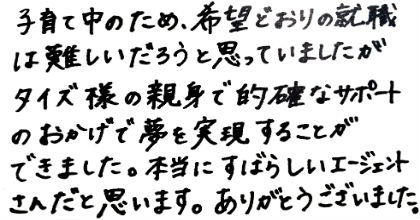 子育て中のため、希望どおりの就職
は難しいだろうと思っていましたが
タイズ様の親身で的確なサポート
のおかげで夢を実現することが
できました。本当にすばらしいエージェント
さんだと思います。ありがとうございました。